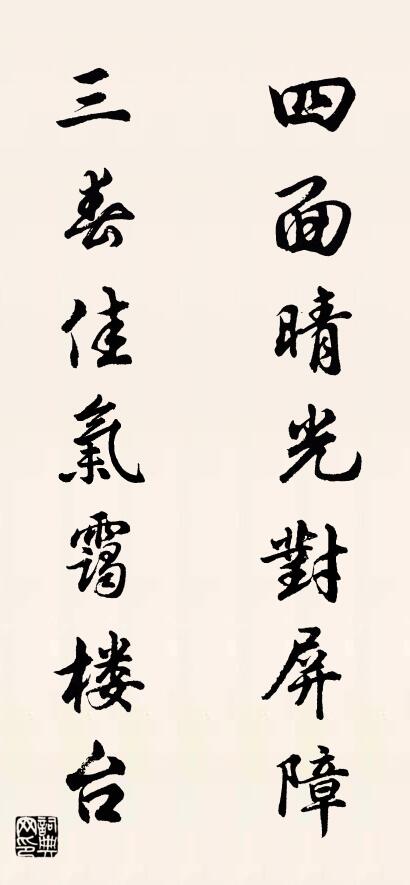 四面晴光對屏障
三春佳氣靄楼台
詞典网印